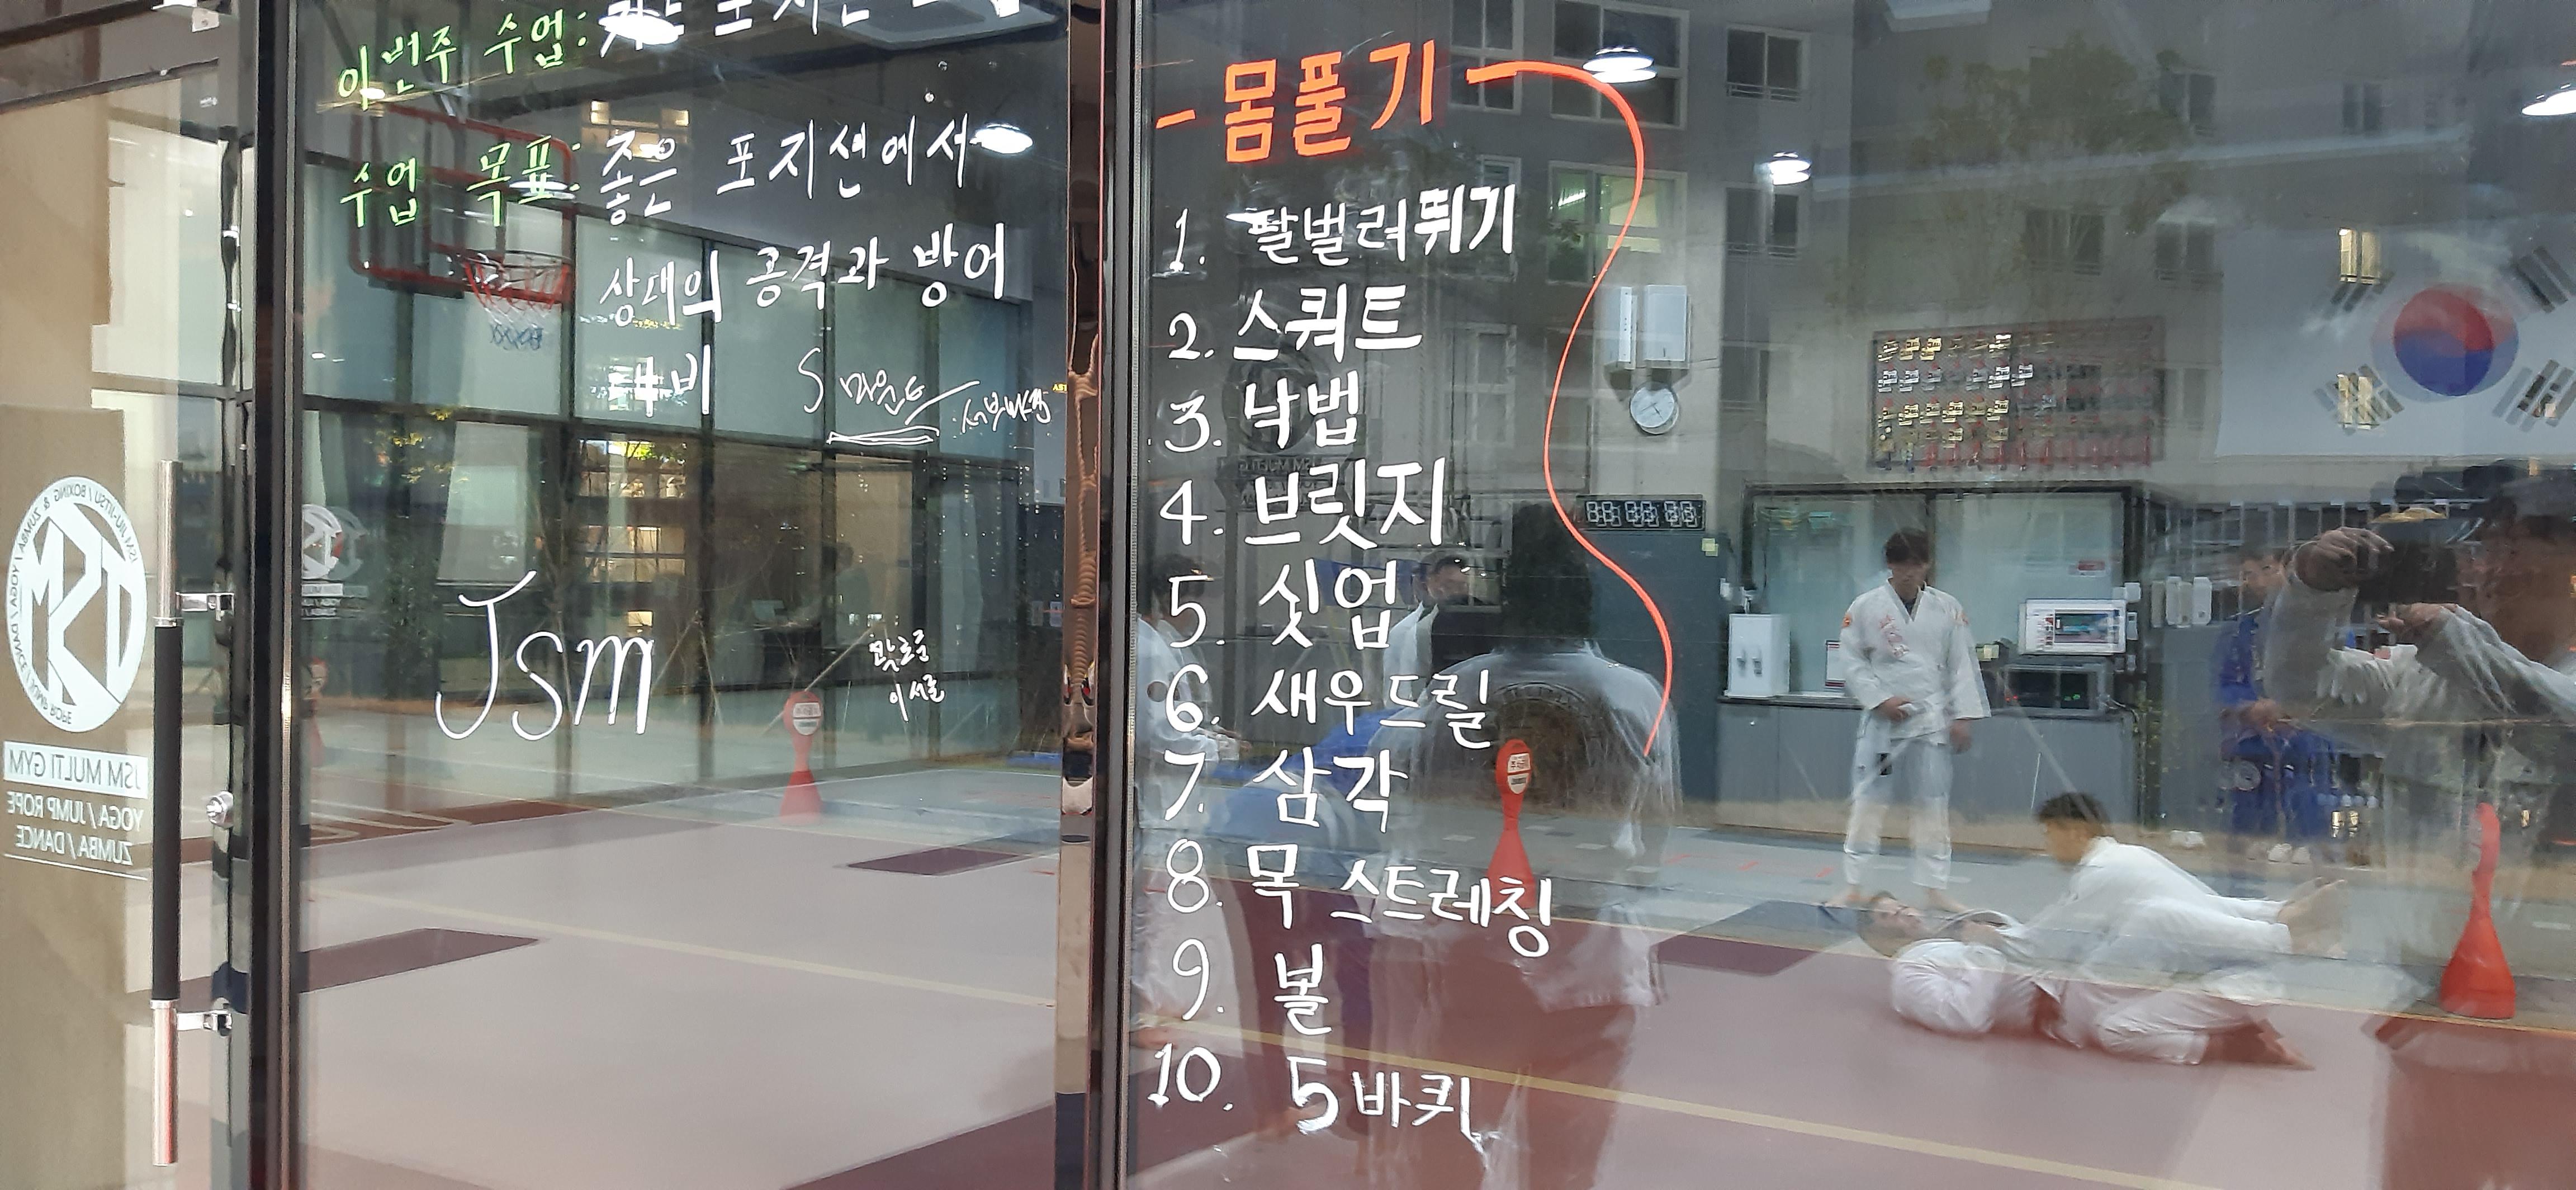 이번주 수업:
수업 목표: 좋은 포지션에서
상대의 공격과 방어
대비
S 마운트
Jsm
이서로
- 몸풀기 -
1. 팔벌려뛰기
2. 스쿼트
3. 낙법
4. 브릿지
5. 싯업
6. 새우드릴
7. 삼각
8. 목 스트레칭
9. 볼
10. 5바퀴
JSM JIU-JITSU / BOXING & ZUMBA / YOGA / DANCE / JUMP ROPE
JSM
JSM MULTI GYM
YOGA / JUMP ROPE
ZUMBA / DANCE